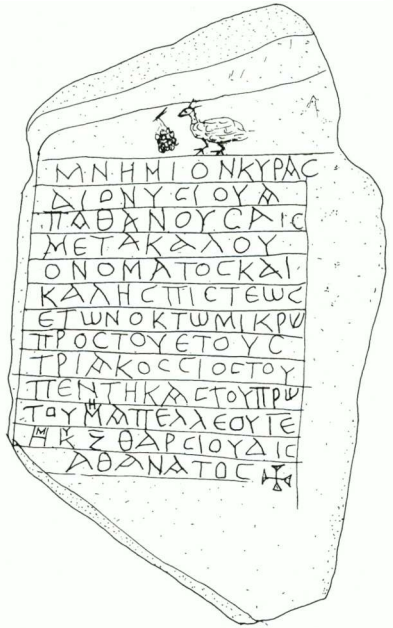 ΜΝΗΜΙΟΝΚΥΡΑϹ
ΔΙΟΝΥϹΙΟΥΑ
ΠΑΘΑΝΟΥϹΑΙϹ
ΜΕΤΑΚΑΛΟΥ
ΟΝΟΜΑΤΟϹΚΑΙ
ΚΑΛΗϹΠΙϹΤΕΩϹ
ΕΤΩΝΟΚΤΩΜΙΚΡΩ
ΠΡΟϹΤΟΥΕΤΟΥϹ
ΤΡΙΑΚΟϹϹΙΟϹΤΟΥ
ΠΕΝΤΗΚΑϹΤΟΥΠΡΩ
ΤΟΥΜΗΑΠΕΛΛΕΟΥΓΕ
ΗΜΚΖΘΑΡϹΙΟΥΔΙϹ
ΑΘΑΝΑΤΟϹ ✠